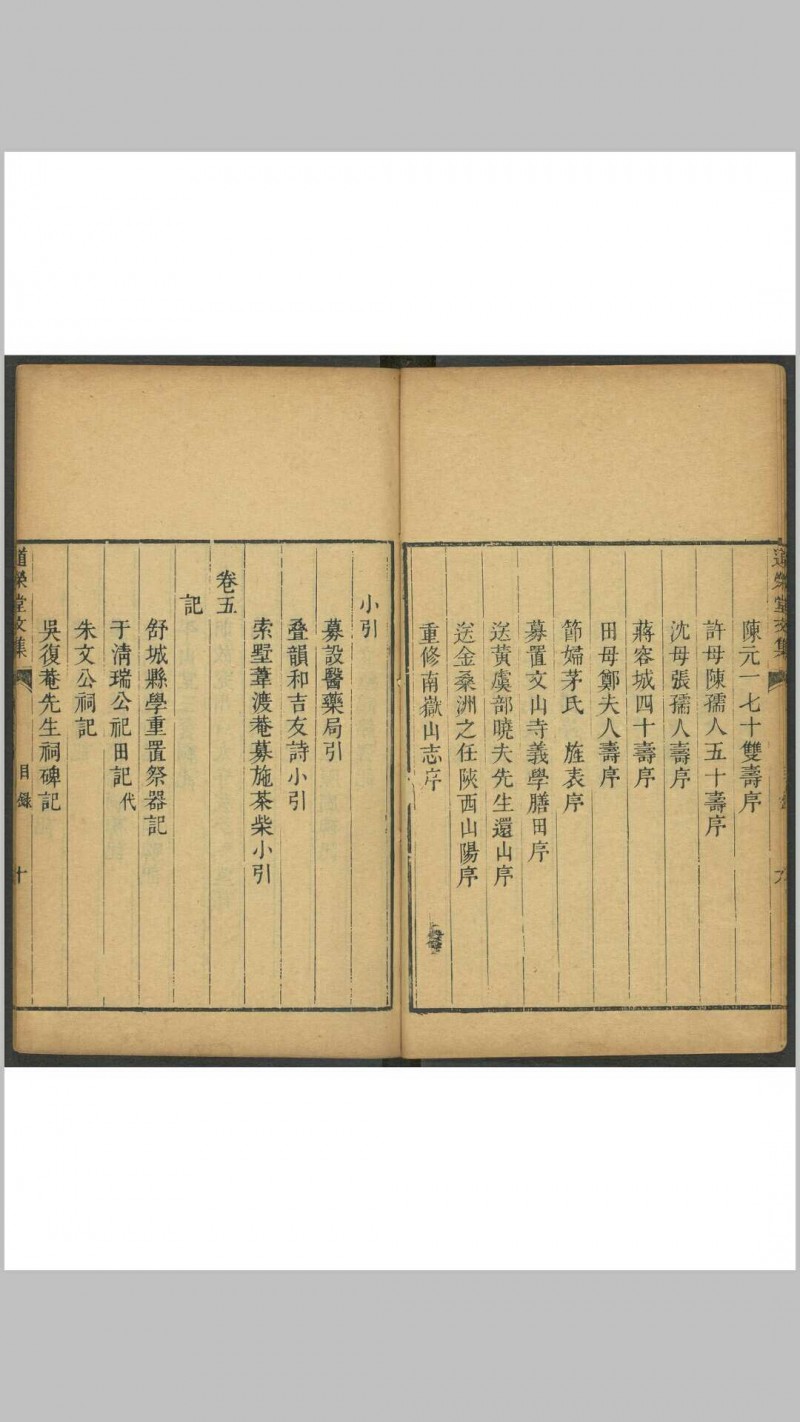 道榮堂文集
陳元一七十雙壽序
許母陳孺人五十壽序
沈母張孺人壽序
蔣容城四十壽序
田母鄭夫人壽序
節婦茅氏 旌表序
募置文山寺義學膳田序
送黃虞部曉夫先生還山序
送金桑洲之任陝西山陽序
重修南嶽山志序
小引
募設醫藥局引
叠韻和吉友詩小引
索墅葦渡菴募施茶柴小引
卷五
記
舒城縣學重置祭器記
于淸瑞公祀田記代
朱文公祠記
吳復菴先生祠碑記
道榮堂文集 目錄 十